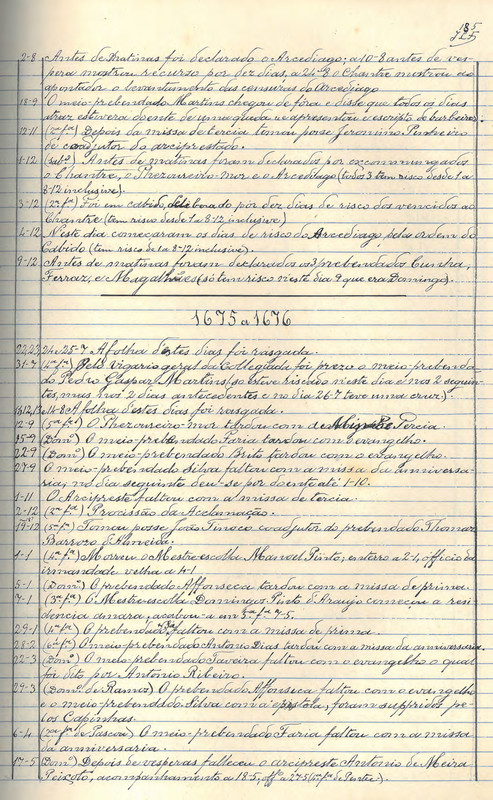 185
2-8 Antes de Matinas foi declarado o Arcediago; a 10-8 antes de ves-
pera mostrou recurso por dez dias, a 24-8 o Chantre mostrou ao
apontador o levantamento das censuras do Arcediago
18-9 O meio-prebendado Martins chegou de fóra e disse que todos os dias
estivera doente de uma queda e apresentou escripto de barbeiro.
12-11 (2ª fª) Depois da missa de tercia tomou posse Jeronimo Pinheiro
de coadjutor do arciprestado.
1-12 (sabº) Antes de matinas foram declarados por excommungados
o Chantre, o Thezoureiro-mor e o Arcediago (todos 3 tem risco desde 1 a
8-12 inclusive).
3-12 (2ª fª) Foi em cabido, deliberado por dez dias de risco dos vencidos ao
Chantre (tem risco desde 1 a 8-12 inclusive)
4-12 Neste dia começaram os dias de risco do Arcediago pela ordem do
Cabido (tem risco de 1 a 8-12 inclusive).
9-12 Antes de matinas foram declarados os 3 prebendados Cunha,
Ferraz, e Magalhães (só tem risco n'este dia 9 que era Domingo).
1675 a 1676
22, 23, 24 e 25-7 A folha d'estes dias foi rasgada.
31-7 (4ª fª) Pelo vigario geral da Collegiada foi prezo o meio-prebenda-
do Pedro Gaspar Martins (só esteve riscado n'este dia e nos 2 seguin-
tes, mas nos 2 dias antecedentes e no dia 26-7 teve uma cruz).
e 14-8 A folha d'estes dias foi rasgada.
12-9 (5ª fª) O Thezoureiro-mor tardou com de Tercia.
15-9 (Domº) O meio-prebendado Faria tardou com o evangelho.
22-9 (Domº) O meio-prebendado Brito tardou com o evangelho.
27-9 O meio-prebendado Silva faltou com a missa da anniversa-
ria; no dia seguinte deu-se por doente até 1-10.
1-11 O Arcipreste faltou com a missa de tercia.
2-12 Procissão da Acclamação.
19-12 (5ª fª) Tomou posse João Tinoco coadjutor do prebendado Thomaz
Barrozo d'Almeida.
1-1 (4ª fª) Morreu o Mestre-escolla Manoel Pinto; enterro a 2-1, officio da
irmandade velha a 4-1
5-1 (Domº) O prebendado Affonseca tardou com a missa de prima.
7-1 (3ª fª) O Mestre-escolla Domingos Pinto d'Araujo começou a resi-
dencia amara; acabou-a em 5ª fª 7-5.
29-1 (4ª fª) O prebendado faltou com a missa de prima.
28-2 (6ª fª) O meio-prebendado Antonio Dias tardou com a missa da anniversaria.
22-3 (Domº) O meio-prebendado Taveira faltou com o evangelho o qual
foi dito por Antonio Ribeiro.
29-3 (Domº de Ramos) O prebendado Affonseca faltou com o evangelho
e o meio-prebendado Silva com a epistola; foram suppridos pe-
los Capinhas.
6-4 (2ª fª de Pascoa) O meio-prebendado Faria faltou com a missa
da anniversaria.
17-5 (Domº) Depois de vesperas falleceu o arcipreste Antonio de Meira
Peixoto, acompanhamento a 18-5; offº a 27-5